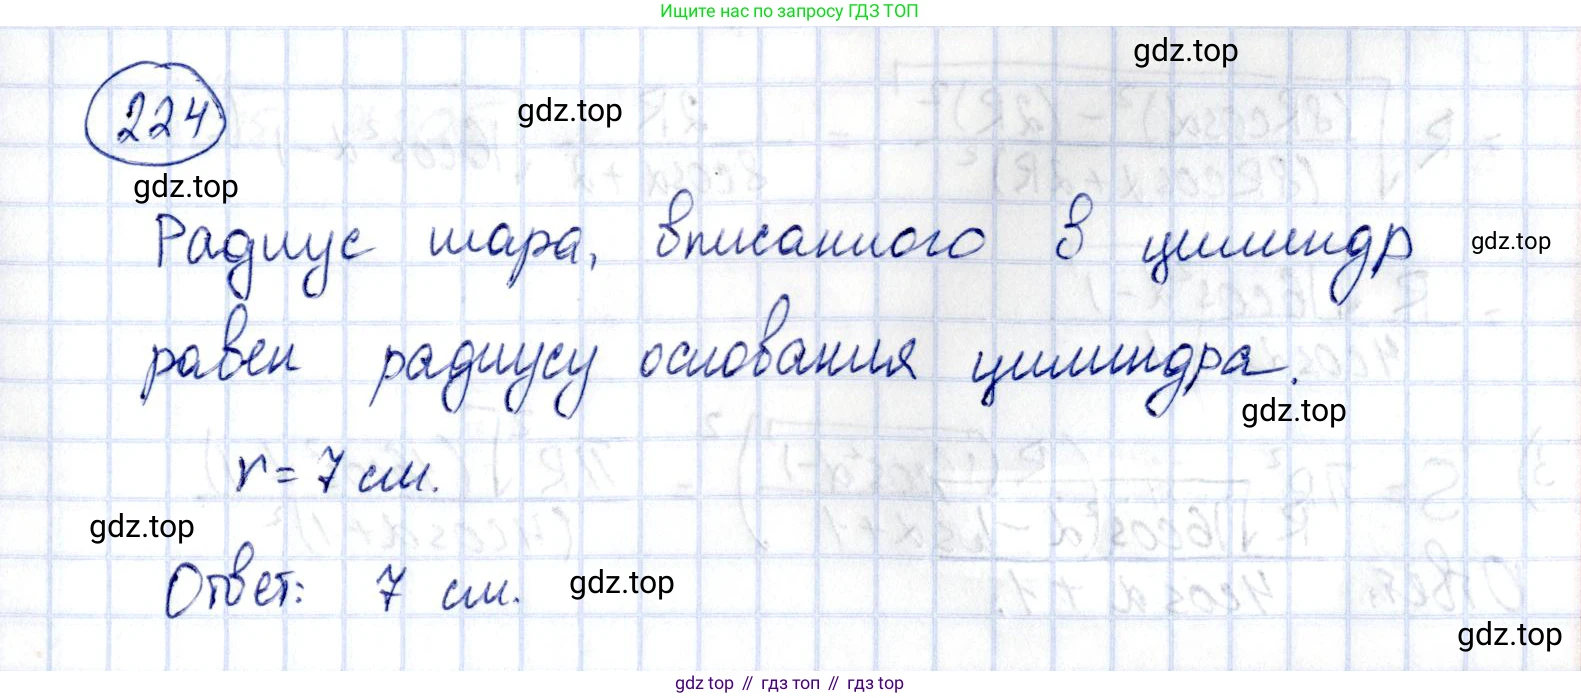 Ищите нас по запросу ГДЗ ТОП
gdz.top
224
gdz.top
gdz.top
Радиус шара, вписанного в цилиндр
gdz.top
равен радиусу основания цилиндра.
gdz.top
r = 7 см.
gdz.top
Ответ: 7 см.
gdz.top
gdz.top
gdz.top // гдз топ // гдз top